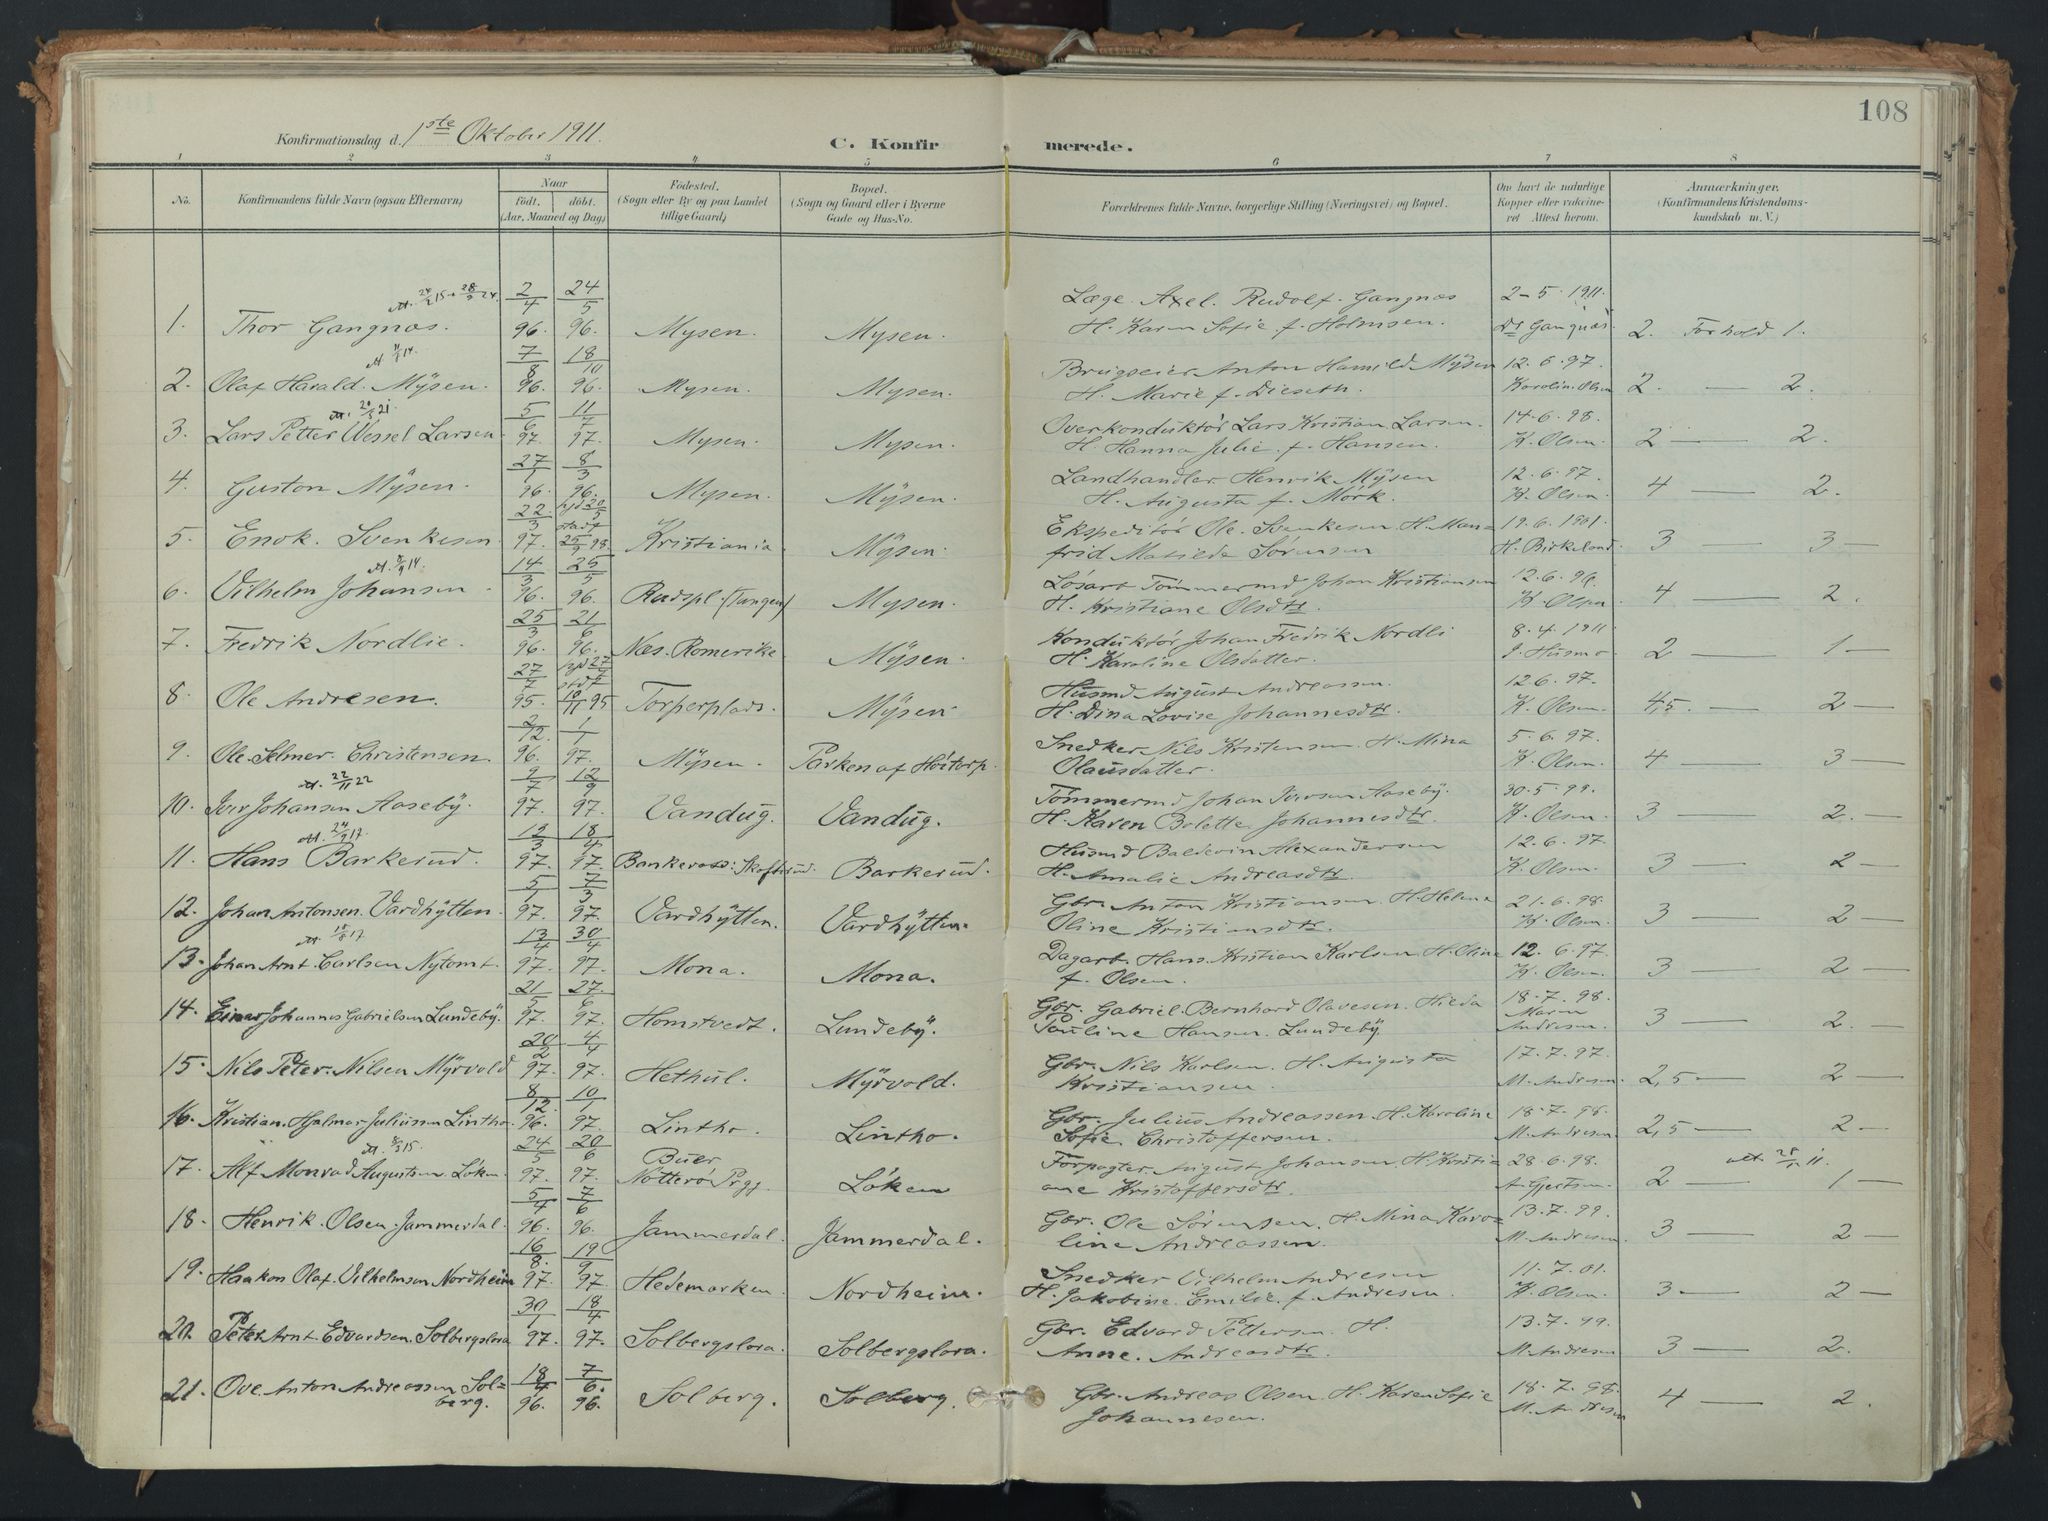 108
Konfirmationsdag d. 1ste Oktober 1911.
C. Konfirmerede.
1 2 3 4 5 6 7 8
No. Konfirmandens fulde Navn (ogsaa Efternavn) Naar født. døbt. (Aar, Maaned og Dag) Fødested. (Sogn eller By og paa Landet tillige Gaard) Bopæl. (Sogn og Gaard eller i Byerne Gade og Hus-No. Forældrenes fulde Navne, borgerlige Stilling (Næringsvei) og Bopæl. Om havt de naturlige Kopper eller vaccineret Attest herom. Anmærkninger. (Konfirmandens Kristendomskundskab m. V.)
att. 24/2 15 + 28/2 24. 2/4 24/5 Læge Axel Rudolf Gangnæs 2-5-1911.
1. Thor Gangnæs. 96. 96. Mysen. Mysen. H. Karen Sofie f. Holmsen. Dr Gangnæs 2. Forhold 1.
7/8 18/10 Brugseier Anton Hamild Mÿsen 12.6.97
2. Olaf Harald Mÿsen. 96. 96. Mysen. Mysen. H. Marie f. Dieseth. Karolin. Olsen 2. — 2.
5/6 11/7 Overkonduktör Lars Kristian Larsen. 14.6.98.
3. Lars Petter Wessel Larsen 97. 97. Mysen. Mysen. H. Hanna Julie f. Hansen. K. Olsen. 2 — 2.
27/1 8/3 Landhandler Henrik Mÿsen 12.6.97.
4. Guston Mÿsen. 96. 96. Mysen. Mÿsen. H. Augusta f. Mörk. K. Olsen 4 — 2.
22/3 hjd 20/5 stadf Ekspeditör Ole Svenkesen H. Man= 19.6.1901.
5. Enok Svenkesen 97. 25/9 98. Kristiania. Mÿsen. frid Matilda Sörensen H. Birkeland 3 — 3 —
14/3 25/5 Lösarb Tömmermd Johan Kristiansen 12.6.96.
6. Vilhelm Johansen 96. 96. Rudspl. (Tangen) Mysen. H. Kristiane Olsdtr. K. Olsen 4 — 2.
25/3 21/6 Konduktör Johan Fredrik Nordli 8.4.1911
7. Fredrik Nordlie. 96. 96. Næs. Romerike Mÿsen. H. Karoline Olsdatter. J. Husmo 2 — 1 —
27/7 hjd 27/7 stdf Husmd August Andreassen. 12.6.97.
8. Ole Andresen. 95. 10/11 95 Torperplads. Mÿsen H. Dina Lovise Johannesdtr. K. Olsen 4,5. — 2 —
2/12. 1/1 Snedker Nils Kristensen H. Mina 5.6.97.
9. Ole Selmer Christensen 96. 97. Mÿsen. Parken af Höitorp. Olausdatter. K. Olsen 4 — 3 —
att. 22/11 22 9/7 12/9 Tömmermd Johan Iversen Aasebÿ. 30.5.99.
10. Iver Johansen Aasebÿ. 97. 97. Vandug. Vandug. H. Karen Bolette Johannesdtr. K. Olsen 3 — 2. —
att. 24/9 17. 13/3 18/4 Husmd Baldevin Alexandersen 12.6.97.
11. Hans Barkerud. 97. 97. Skofterud. Barkerud. H. Amalie Andreasdtr. K. Olsen. 3 — 2 —
5/1 7/3 Gbr. Anton Kristiansen H. Helena 21.6.98
12. Johan Antonsen Vardhÿtten. 97. 97. Vardhÿtten. Vardhÿtten. Oline Kristiansdtr. K. Olsen. 3 — 2 —
13/4 30/4 Dagarb. Hans Kristian Karlsen H. Oline 12.6.97
13. Johan Arnt Carlsen Nytomt. 97. 97. Mona. Mona. f. Olsen. K. Olsen. 3 — 2 —
21/5 27/6 Gbr. Gabriel Bernhard Olavesen Hilda 18.7.98.
14. Einar Johannes Gabrielsen Lundebÿ. 97. 97. Homstvedt. Lundebÿ. Pauline Hansen Lundebÿ. Maren Andresen. 3 — 2. —
20/2 4/4 Gbr. Nils Karlsen H. Augusta 17.7.97.
15. Nils Peter Nilsen Mÿrvold 97. 97. Hethul. Mÿrvold. Kristiansen. M. Andresen. 2,5 — 2 —
8/12. 10/1 Gbr. Julius Andreassen H. Karoline 18.7.98.
16. Kristian Hjalmar Juliussen Lintho. 96. 97. Lintho. Lintho. Sofie Christoffersen. M. Andresen. 2,5 — 2 —
24/5 20/6 Buer Forpagter August Johansen H. Kristi= 28.6.98.
17. Alf Monrad Augustsen Löken. 97. 97. Nötterö Prgj. Löken ane Kristoffersdtr. A. Gjertsen. 2 — 1 —
5/4 7/6 Gbr. Ole Sörensen H. Mina Karo= 13.7.99.
18. Henrik Olsen Jammerdal. 96. 96. Jammerdal. Jammerdal. line Andreassen. M. Andresen 3 — 2 —
16/8. 19/9 Snedker Vilhelm Andresen 11.7.01.
19. Haakon Olaf Vilhelmsen Nordheim 97. 97. Hedemarken. Nordheim. H. Jakobine Emilie f. Andresen. K. Olsen. 3 — 2 —
30/1 18/4 Gbr. Edvard Pettersen H 13.7.99.
20. Peter Arnt Edvardsen Solbergslora 97. 97. Solbergslora. Solbergslora. Anne Andreasdtr. M. Andresen 3 — 2.
18/4 7/6. Gbr. Andreas Olsen H. Karen Sofie 18.7.98.
21. Ove Anton Andreassen Sol=berg. 96. 96. Solberg. Solberg. Johannesen. M. Andresen 4 — 2.